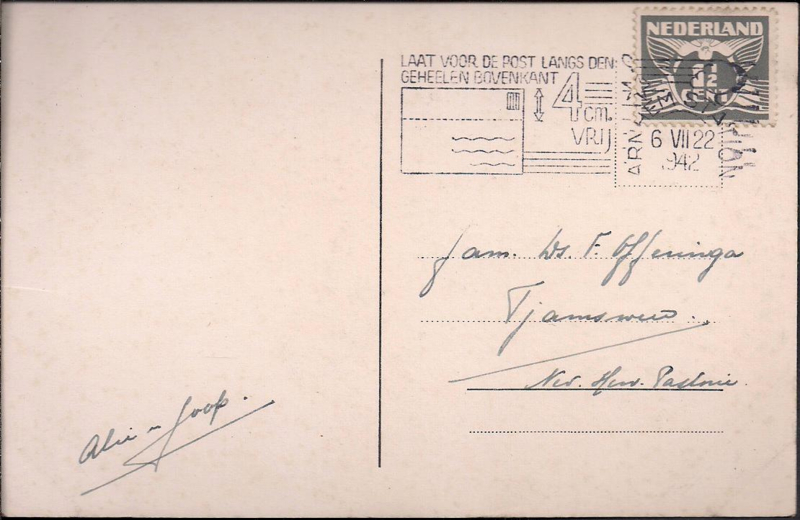 NEDERLAND
1½
CENT
LAAT VOOR DE POST LANGS DEN
GEHEELEN BOVENKANT
4 cm.
VRIJ
ARNHEM STATION
6 VII 22
1942
fam. Ds. F. Offeringa
Tjamsweer.
Ned. Herv. Pastorie.
Alie en Joop.